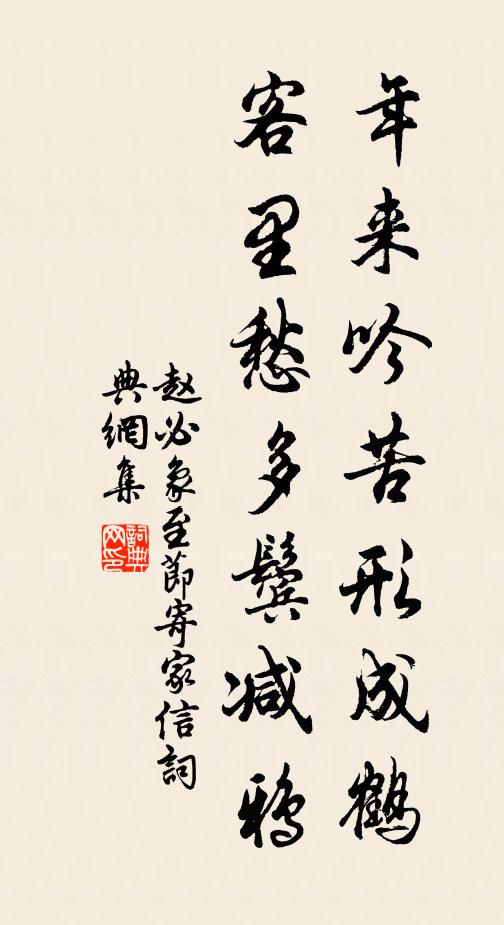 年来吟苦形成鹤
客里愁多鬓减鸦
赵必象至節寄家信詞
典網集
詞典
网印